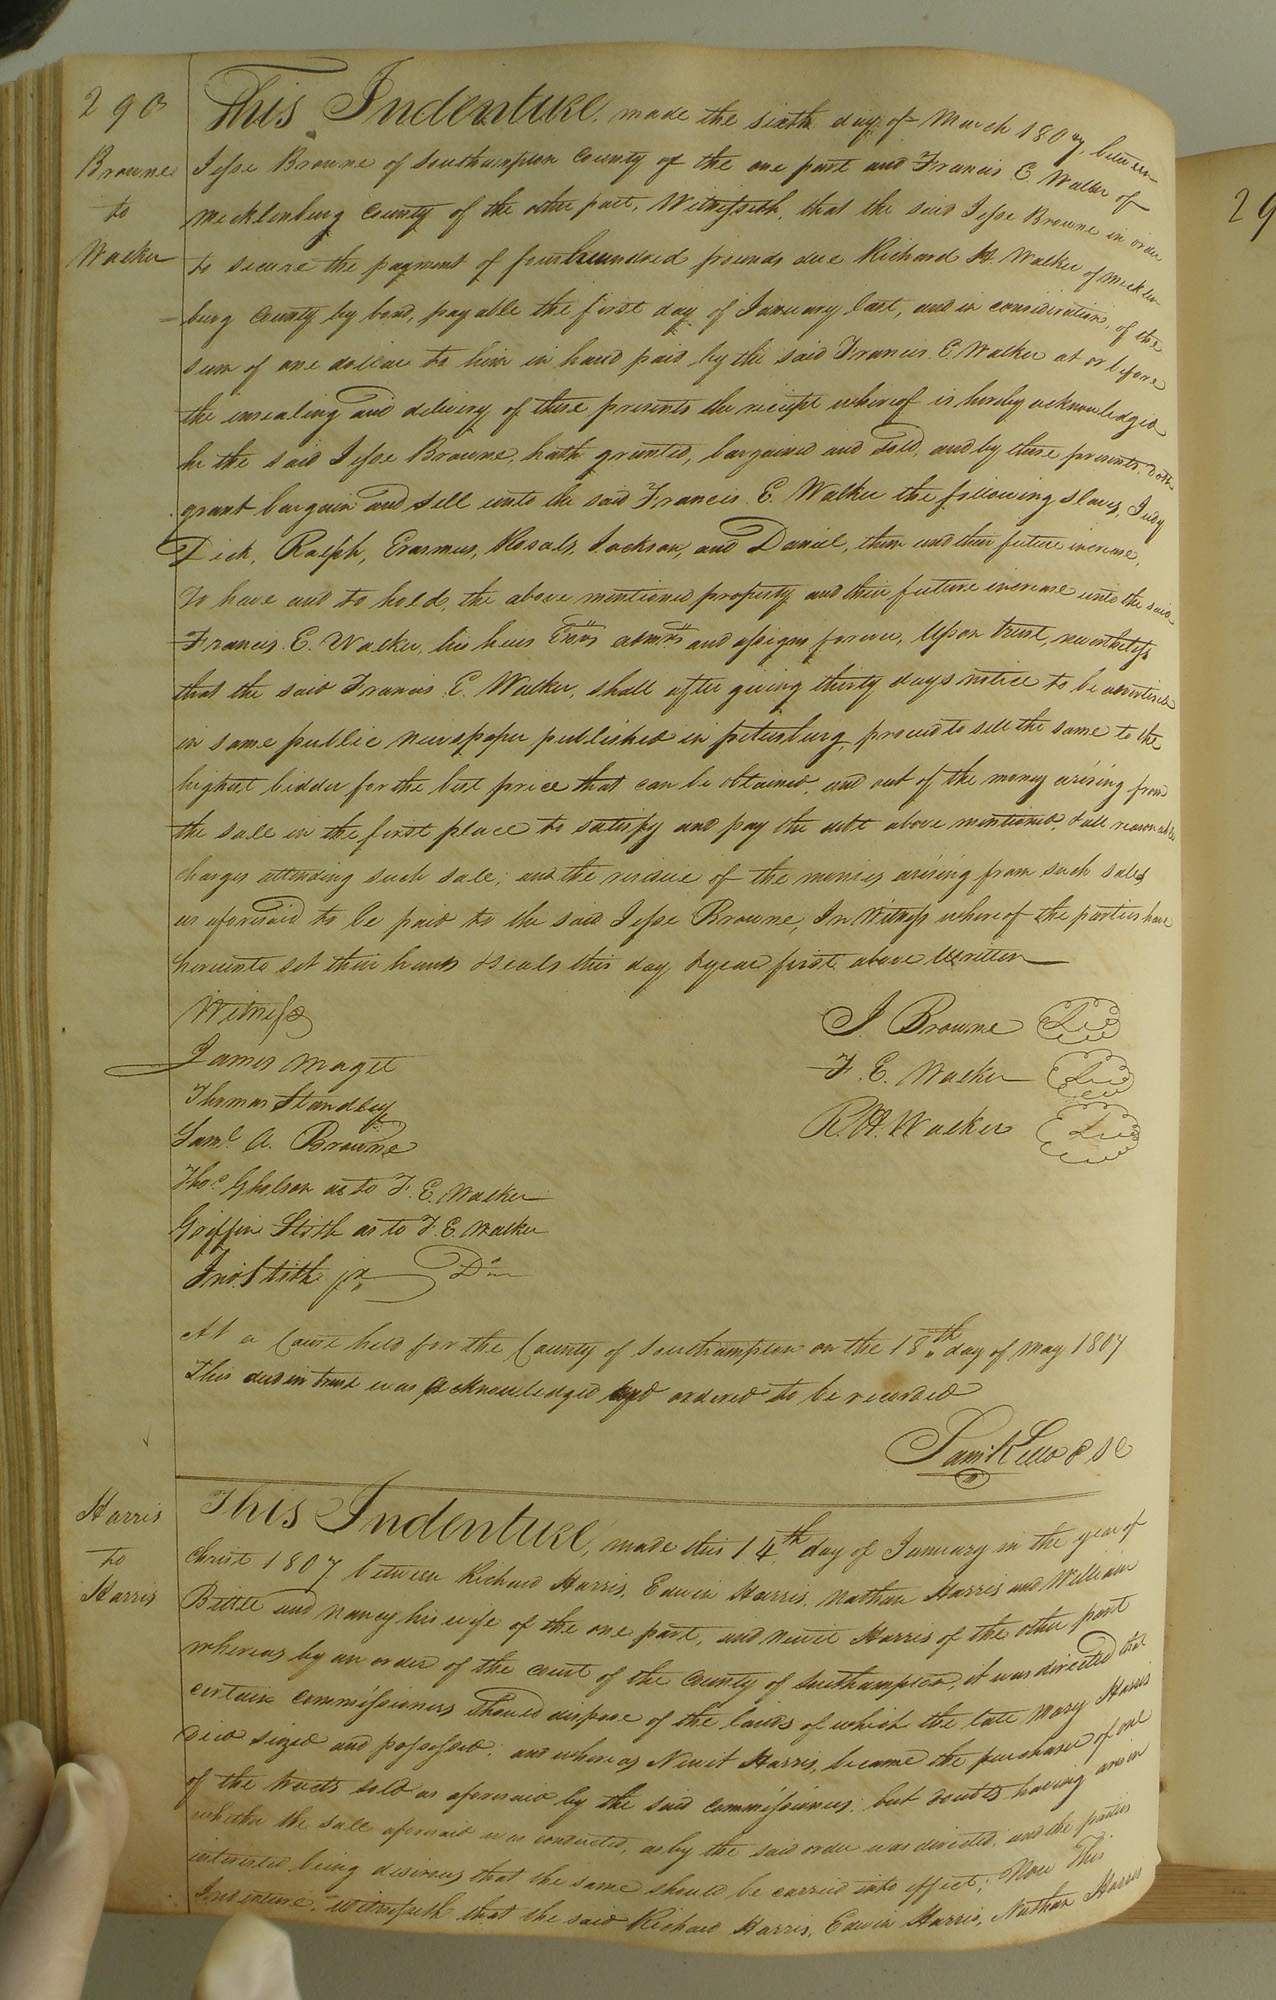 290
Browne
to
Walker
This Indenture, made the sixth day of March 1807, between
Jesse Browne of Southampton County of the one part and Francis E. Walker of
Mecklenburg County of the other part, Witnesseth, that the said Jesse Browne in order
to secure the payment of four hundred pounds due Richard H. Walker of Mecklen
=burg County by bond, payable the first day of January last, and in consideration, of the
sum of one dollar to him in hand paid by the said Francis E. Walker at or before
the ensealing and delivery of these presents the receipt whereof is hereby acknowledged
he the said Jesse Browne, hath granted, bargained and sold, and by these presents doth
grant bargain and sell unto the said Francis E. Walker the following slaves, Judy
Dick, Ralph, Erasmus, Jackson, and Daniel, them and their future increase,
To have and to hold, the above mentioned property and their future increase unto the said
Francis E. Walker, his heirs Exrs admrs and assigns forever, Upon trust, nevertheless
that the said Francis E. Walker, shall after giving thirty days notice to be advertised
in some public newspaper published in petersburg, proceed to sell the same to the
highest bidder for the best price that can be obtained, and out of the money arising from
the sale in the first place to satisfy and pay the debt above mentioned, & all reasonable
charges attending such sale; and the residue of the monies arising from such sales
as aforesaid to be paid to the said Jesse Browne, In Witness whereof the parties have
hereunto set their hands & seals this day & year first above Written
Witness
James Maget
Thomas Standley
Saml. A. Browne
Thos. Gholson as to F. E. Walker
Griffin Stith as to F. E. Walker
Jno. Stith jr. Do
J. Browne
F. E. Walker
R. H. Walker
At a Court held for the County of Southampton on the 18th day of May 1807
This deed in trust was acknowledged and ordered to be recorded
Sam: Kello
Harris
to
Harris
This Indenture, made this 14th day of January in the year of
Christ 1807 between Richard Harris, Edwin Harris, Nathan Harris and William
Bittle and Nancy his wife of the one part, and Newit Harris of the other part
whereas by an order of the court of the County of Southampton, it was directed that
certain commissioners should dispose of the lands of which the late Mary Harris
died siezed and possessed; and whereas Newit Harris, became the purchaser of one
of the tracts sold as aforesaid by the said commissioners; but doubts having arisen
whether the sale aforesaid was conducted, as by the said order was directed, and the parties
interested being desirous that the same should be carried into effect; Now This
Indenture, witnesseth that the said Richard Harris, Edwin Harris, Nathan Harris
29